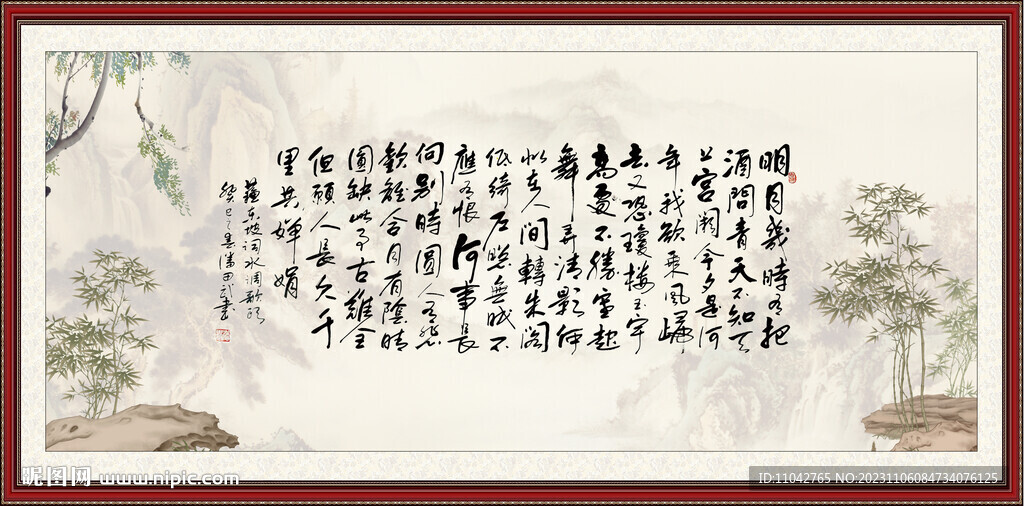 明月幾時有把
酒問青天不知天
上宮闕今夕是何
年我欲乘風歸
去又恐瓊樓玉宇
高處不勝寒起
舞弄清影何
似在人間轉朱閣
低綺户照無眠不
應有恨何事長
向別時圓人有悲
歡離合月有陰晴
圓缺此事古難全
但願人長久千
里共嬋娟
蘇東坡詞水調歌頭
癸巳之春潘田武書
昵图网 www.nipic.com
ID:11042765 NO:20231106084734076125